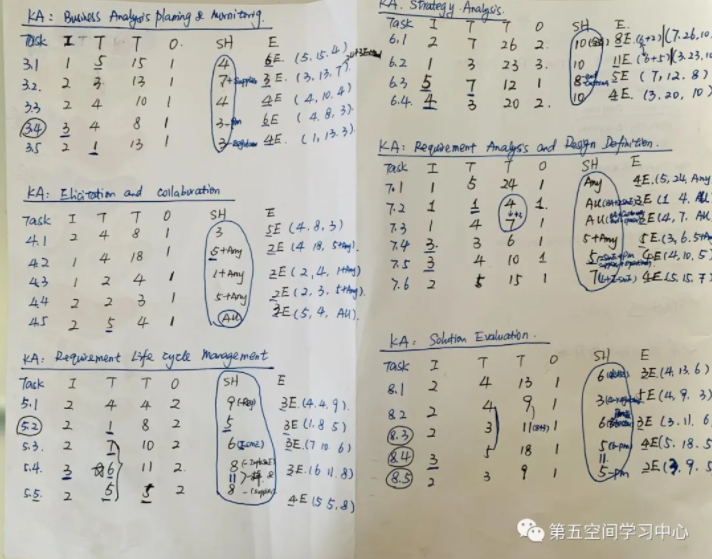 KA: Business Analysis Planing & Monitoring.
Task I T T O. SH E.
3.1 1 5 15 1 4 6E (5, 15, 4)
3.2. 2 3 13 1 7 3E. (3, 13, 7)
3.3 2 4 10 1 4 4E (4, 10, 4)
3.4 3 4 8 1 3 6E (4, 8, 3)
3.5 2 1 13 1 3 4E. (1, 13, 3)
KA: Elicitation and collaboration
Task I T T O SH E
4.1 2 4 8 1 3 5E (4, 8, 3)
4.2 1 4 18 1 5+Any 2E (4 18, 5+Any)
4.3 1 2 4 1 1+Any 2E (2, 4, 1+Any)
4.4 2 2 3 1 5+Any 2E (2, 3, 5+Any).
4.5 2 5 4 1 All 3E (5, 4, All).
KA: Requirement Life cycle Management
Task I T T O SH E
5.1 2 4 4 2 9 3E (4, 4, 9)
5.2 2 1 8 2 5 3E (1, 8, 5)
5.3. 2 7 10 2 6 3E (7 10, 6)
5.4. 3 6 11 2. 8 3E (6 11, 8)
11
5.5. 2 5 5 2 8 4E (5 5, 8)
KA. Strategy Analysis.
Task I T T O SH E.
6.1 2 7 26 2. 10 8E (6+2) (7, 26, 10)
6.2 1 3 23 3. 10 11E (6+5) (3, 23, 10)
6.3 5 7 12 1 8 5E (7, 12, 8)
6.4. 4 3 20 2. 10 4E. (3, 20, 10)
KA: Requirement Analysis and Design Definition.
Task I T T O SH E
7.1 1 5 24 1 Any 4E (5, 24, Any
7.2 1 1 4 1. All 3E (1 4, All
7.3 1 4 7 1 All 3E (4, 7, All
7.4 3. 3 6 1 5+Any 5E (3, 6, 5+Any
7.5 3 4 10 1 5 4E (4, 10, 5)
7.6 2 5 15 1 7 4E (5, 15, 7)
KA: Solution Evaluation.
Task I T T O SH E
8.1 2 4 13 1 6 3E (4, 13, 6)
8.2 2 4 9 1 3 5E (4, 9, 3)
8.3 2 3 11 1 6 3E (3, 11, 6)
8.4 3 5 18 1 5 4E (5, 18, 5
11.
8.5 2 3 9 1 5-pm 2E (3, 9, 5
第五空间学习中心